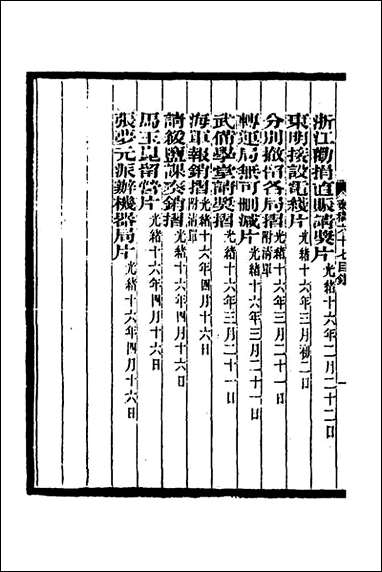 奏稿六十七目錄
一
浙江勸捐直賑請獎片光緒十六年二月二十二日
東明接設電綫片光緒十六年三月初二日
分別撤留各局摺附清單光緒十六年三月二十一日
轉運局無可刪減片光緒十六年三月二十一日
武備學堂請獎摺光緒十六年三月二十一日
海軍報銷摺附清單光緒十六年四月十六日
請緩鹽課奏銷摺光緒十六年四月十六日
馬玉崑留營片光緒十六年四月十六日
張夢元派辦機器局片光緒十六年四月十六日